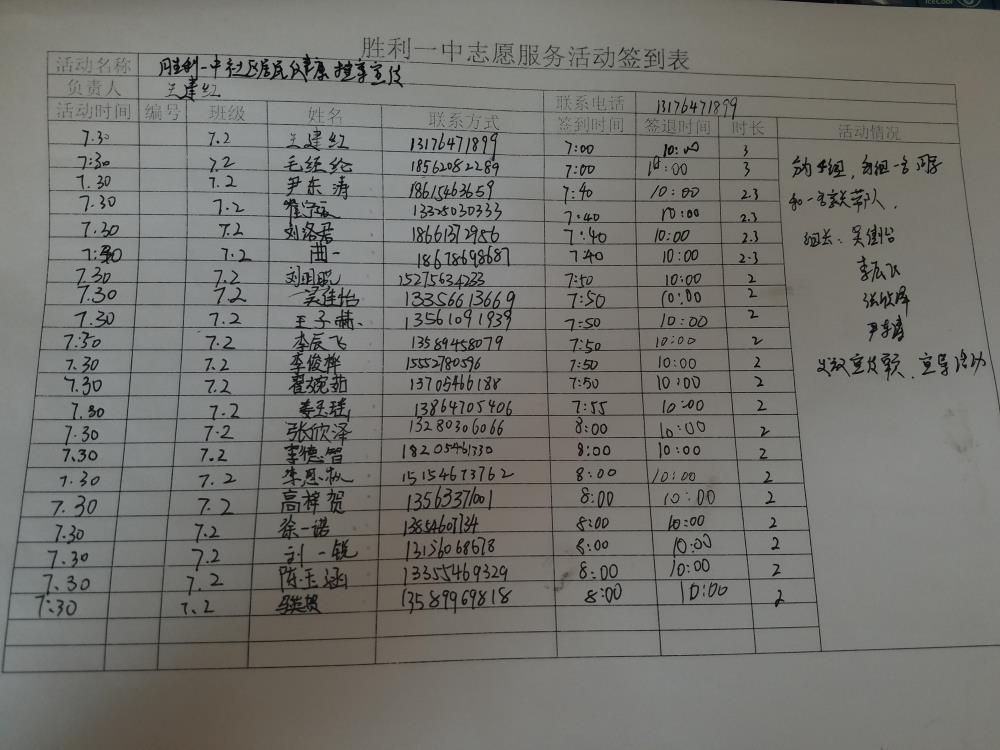 IceCool
胜利一中志愿服务活动签到表
活动名称 胜利一中社区居民 宣传
负责人 王建红 联系电话 13176471899
活动时间 编号 班级 姓名 联系方式 签到时间 签退时间 时长 活动情况
7.30 7.2 王建红 13176471899 7:00 10:00 3
7:30 7.2 毛经纶 18562082289 7:00 10:00 3
7.30 7.2 尹东涛 18615463659 7:40 10:00 2.3
7.30 7.2 13325030333 7:40 10:00 2.3
7.30 7.2 刘洛君 18661372956 7:40 10:00 2.3
7:30 7.2 曲一 18678698687 7:40 10:00 2.3
7.30 7.2 15275634233 7:50 10:00 2
7.30 7.2 吴佳怡 13356613669 7:50 10:00 2
7.30 7.2 王子赫 13561091939 7:50 10:00 2
7:30 7.2 李辰飞 13589458079 7:50 10:00 2
7.30 7.2 李俊桦 15552780596 7:50 10:00 2
7.30 7.2 翟婉茹 13705466188 7:50 10:00 2
7.30 7.2 13864705406 7:55 10:00 2
7.30 7.2 张欣泽 13280306066 8:00 10:00 2
7.30 7.2 李德智 18205461330 8:00 10:00 2
7.30 7.2 15154673762 8:00 10:00 2
7.30 7.2 高梓贺 13563371001 8:00 10:00 2
7.30 7.2 徐一诺 13854607734 8:00 10:00 2
7.30 7.2 刘一锐 8:00 10:00 2
7.30 7.2 陈玉涵 13355469329 8:00 10:00 2
7:30 7.2 13589969818 8:00 10:00 2
分为4组，每组一名同学
和一名家长带队．
组长：吴佳怡
李辰飞
张欣泽
尹东涛
宣导活动